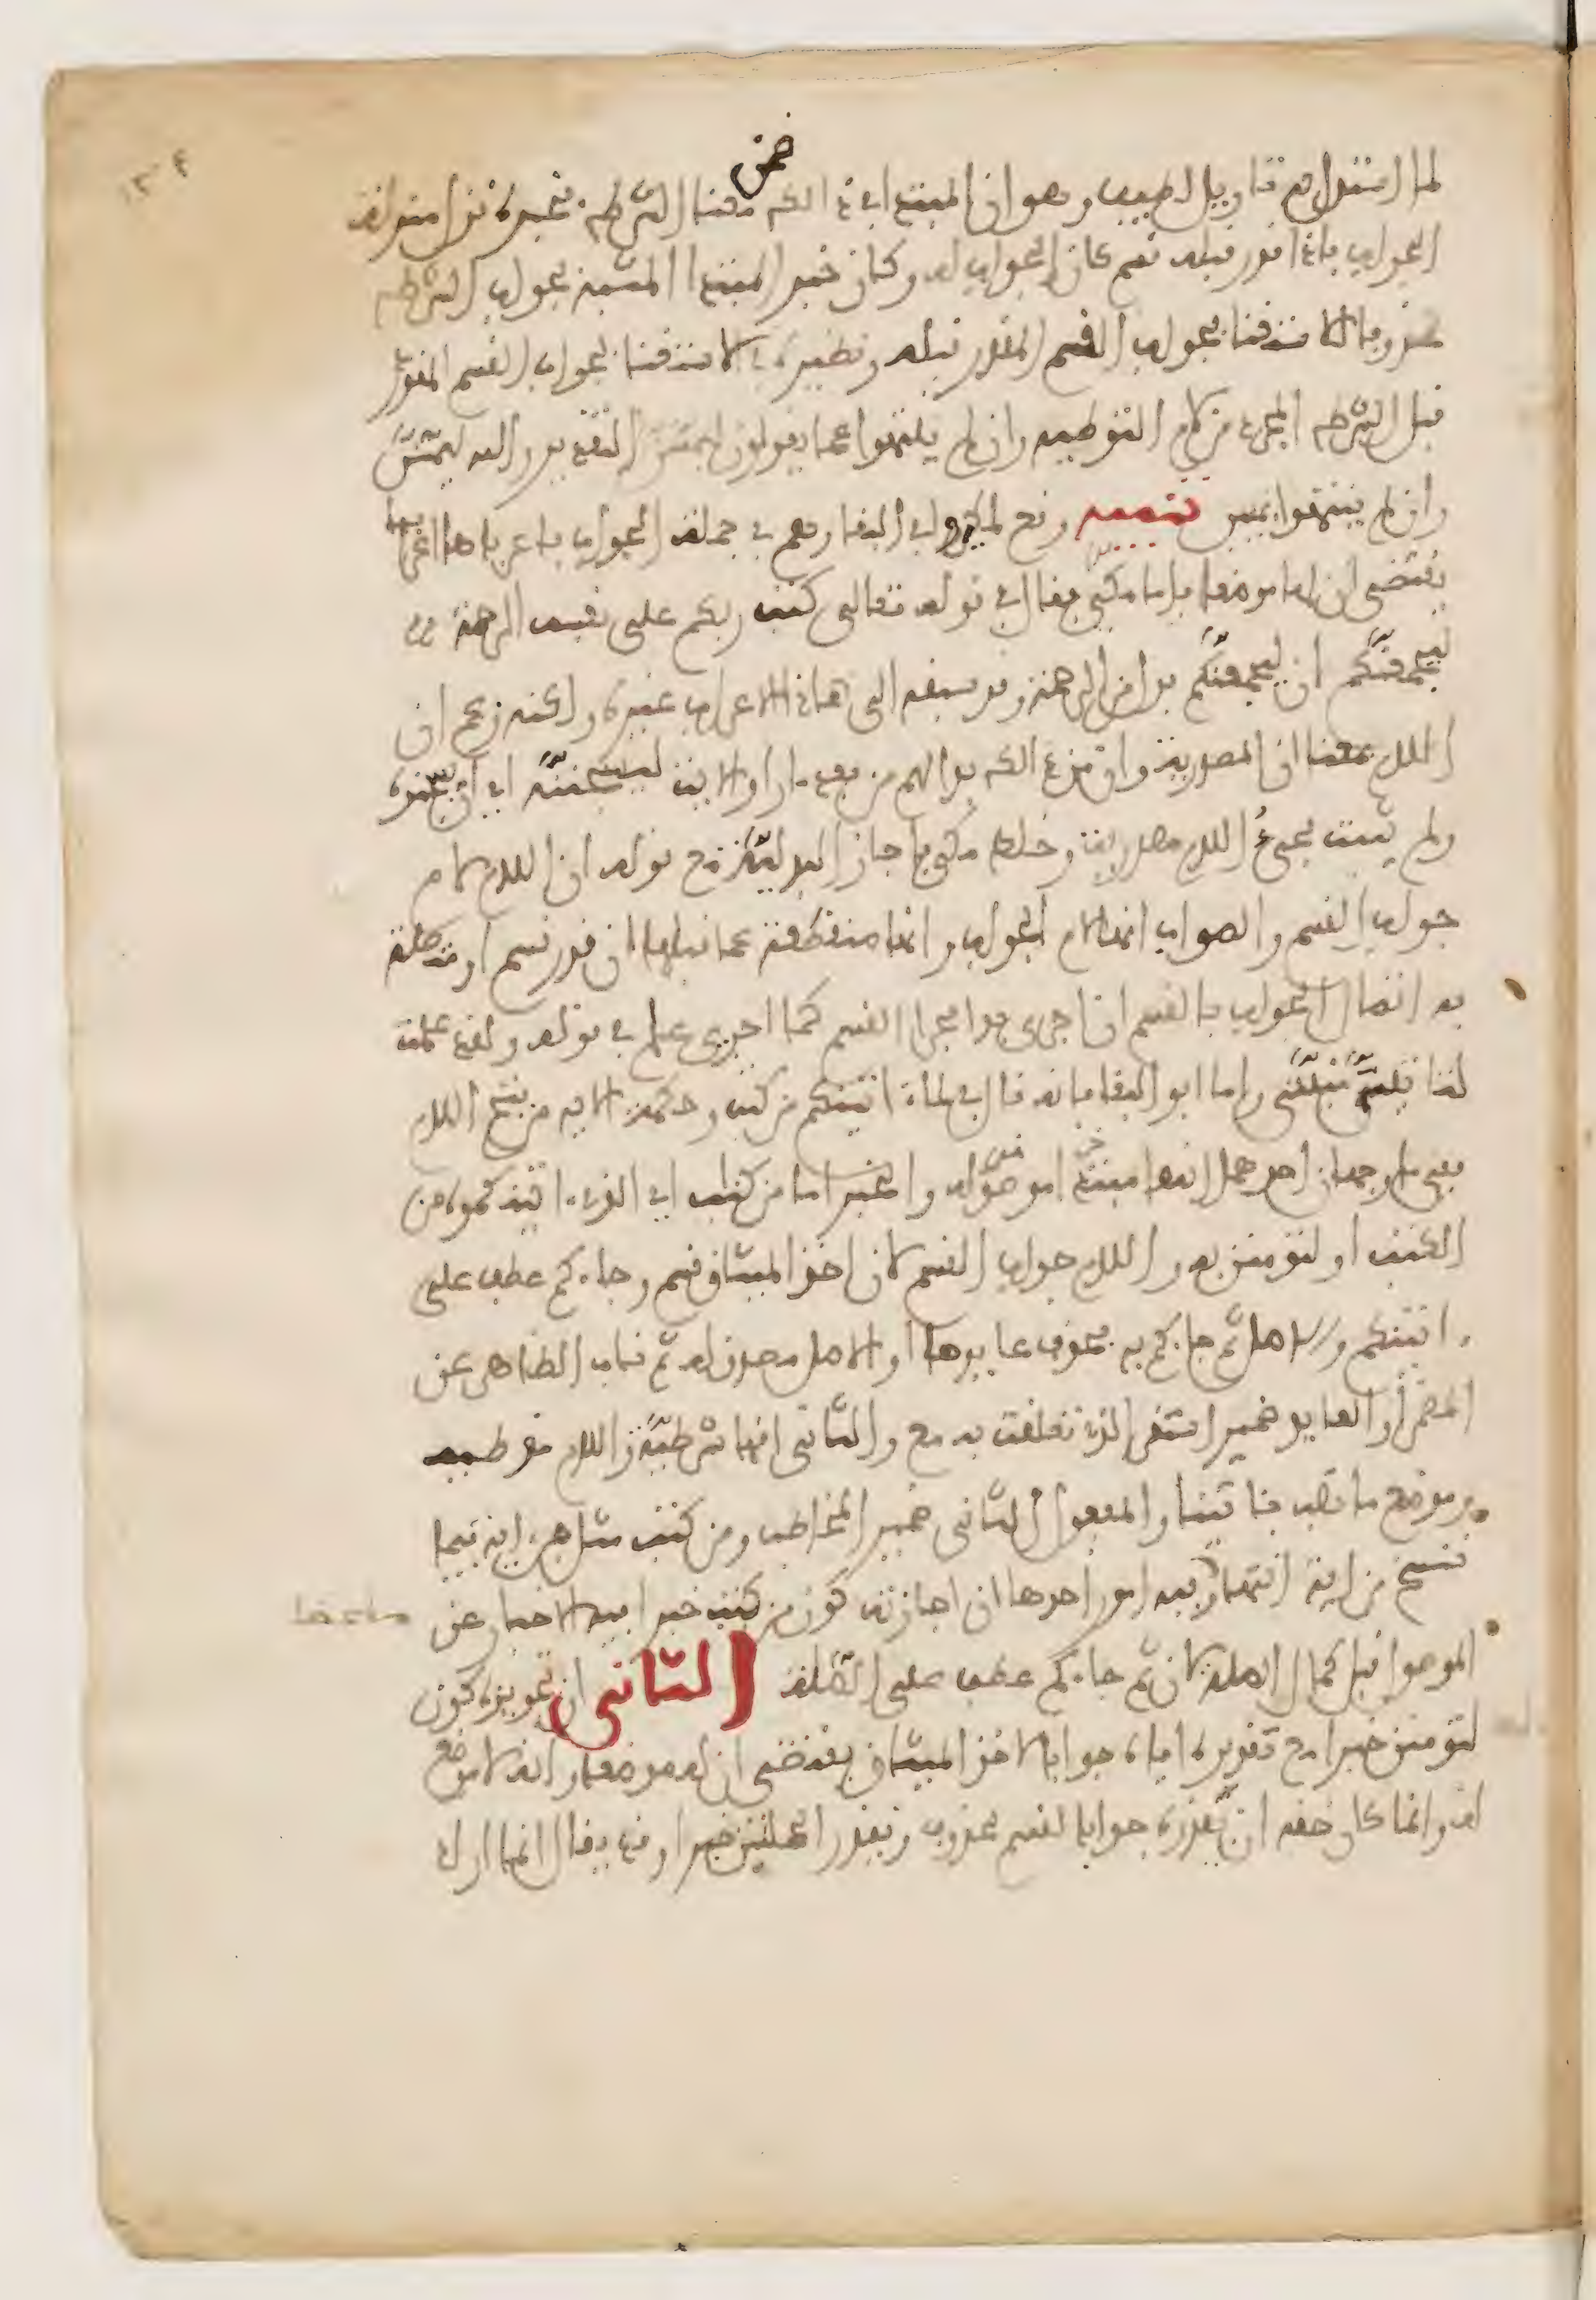 لما استدل به تاويل لطيف وهو ان المبتدا الذي ضمن معنا الشرط خبره منزل منزلة
الجواب فاذا قدر قبله قسم كان الجواب له وكان خبر المبتدا المشبه لجواب الشرط
محذوفا للاستغنا بجواب القسم المقدر قبله ونظيره في الاستغنا بجواب القسم المقدر
قبل الشرط المجرد من لام التوطيه وان لم ينتهوا عما يقولون ليمسن التقدير والله ليمسن
وان لم ينتهوا يمسن تنبيه وقع لمكي وابي البقا وهم في جملة الجواب فاعرباها اعرابا
يقتضي ان لها موضعا فاما مكي فقال في قوله تعالى كتب ربكم على نفسه الرحمة
ليجمعنكم ان ليجمعنكم بدل من الرحمة وقد سبقه الى هذا الاعراب غيره ولكنه زعم ان
اللام بمعنا ان المصدرية وان من ذلك بدا لهم من بعد ما راوا الايت ليسجننه اي ان يسجنوه
ولم يثبت مجيء اللام مصدرية وخلط مكي فاجاز البدلية مع قوله ان اللام لام
جواب القسم والصواب انها لام الجواب وانها منقطعة عما قبلها ان قدر قسم او متصلة
به اتصال الجواب بالقسم ان اجري بدا مجرا القسم كما اجري علم في قوله ولقد علمت
لتاتين منيتي واما ابو البقا فانه قال في لما ءاتيتكم من كتب وحكمة الايه من فتح اللام
ففي ما وجهان احدهما انها مبتدا موصولة والخبر اما من كتاب اي الذي ءاتيتكموه من
الكتب او لتومنن به واللام جواب القسم لان اخذ الميثاق قسم وجاءكم عطف على
ءاتيتكم والاصل ثم جاءكم به فحذف عايدها او الاصل مصدق له ثم ناب الظاهر عن
المضمر او العايد ضمير استقر الذي تعلقت به مع والثاني انها شرطية واللام موطيه
وموضع ما نصب بءاتيتنا والمفعول الثاني ضمير المخاطب ومن كتب مثل من ءاية فيما
ننسخ من اية انتهى وفيه امور احدها ان اجازته كون من كتب خبرا فيه الاخبار عن
الموصول قبل كمال الصلة لان ثم جاءكم عطف على الصلة الثاني ان تجويزه كون
لتومنن خبرا مع تقديره اياه جوابا لاخذ الميثاق يقتضي ان له موضعا وانه لا موضع
له وانما كان حقه ان يقدره جوابا لقسم محذوف ويقدر الجملتين خبرا وقد يقال انما اراد